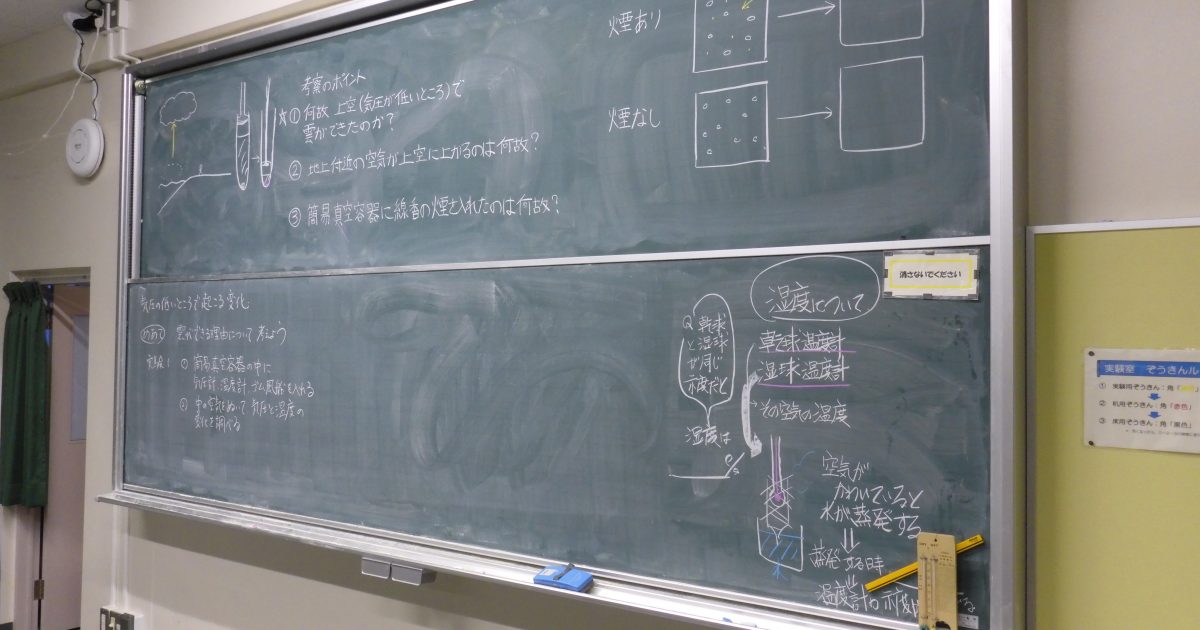 考察のポイント
☆① 何故 上空(気圧が低いところ)で
雲ができたのか?
② 地上付近の空気が上空に上がるのは何故?
③ 簡易真空容器に線香の煙を入れたのは何故?
煙あり
煙なし
気圧の低いところで起こる変化
めあて 雲ができる理由について考えよう
実験1 ① 簡易真空容器の中に
気圧計、温度計、ゴム風船を入れる
② 中の空気をぬいて 気圧と温度の
変化を調べる
Q 乾球
と湿球
が同じ
示度だと
湿度は
%
湿度について
乾球温度計
湿球温度計
→その空気の温度
空気が
かわいていると
水が蒸発する
蒸発する時
温度計の示度
消さないでください
実験室 ぞうきんルー
① 実験用ぞうきん:角「
② 机用ぞうきん:角「赤色」
③ 床用ぞうきん:角「黒色」